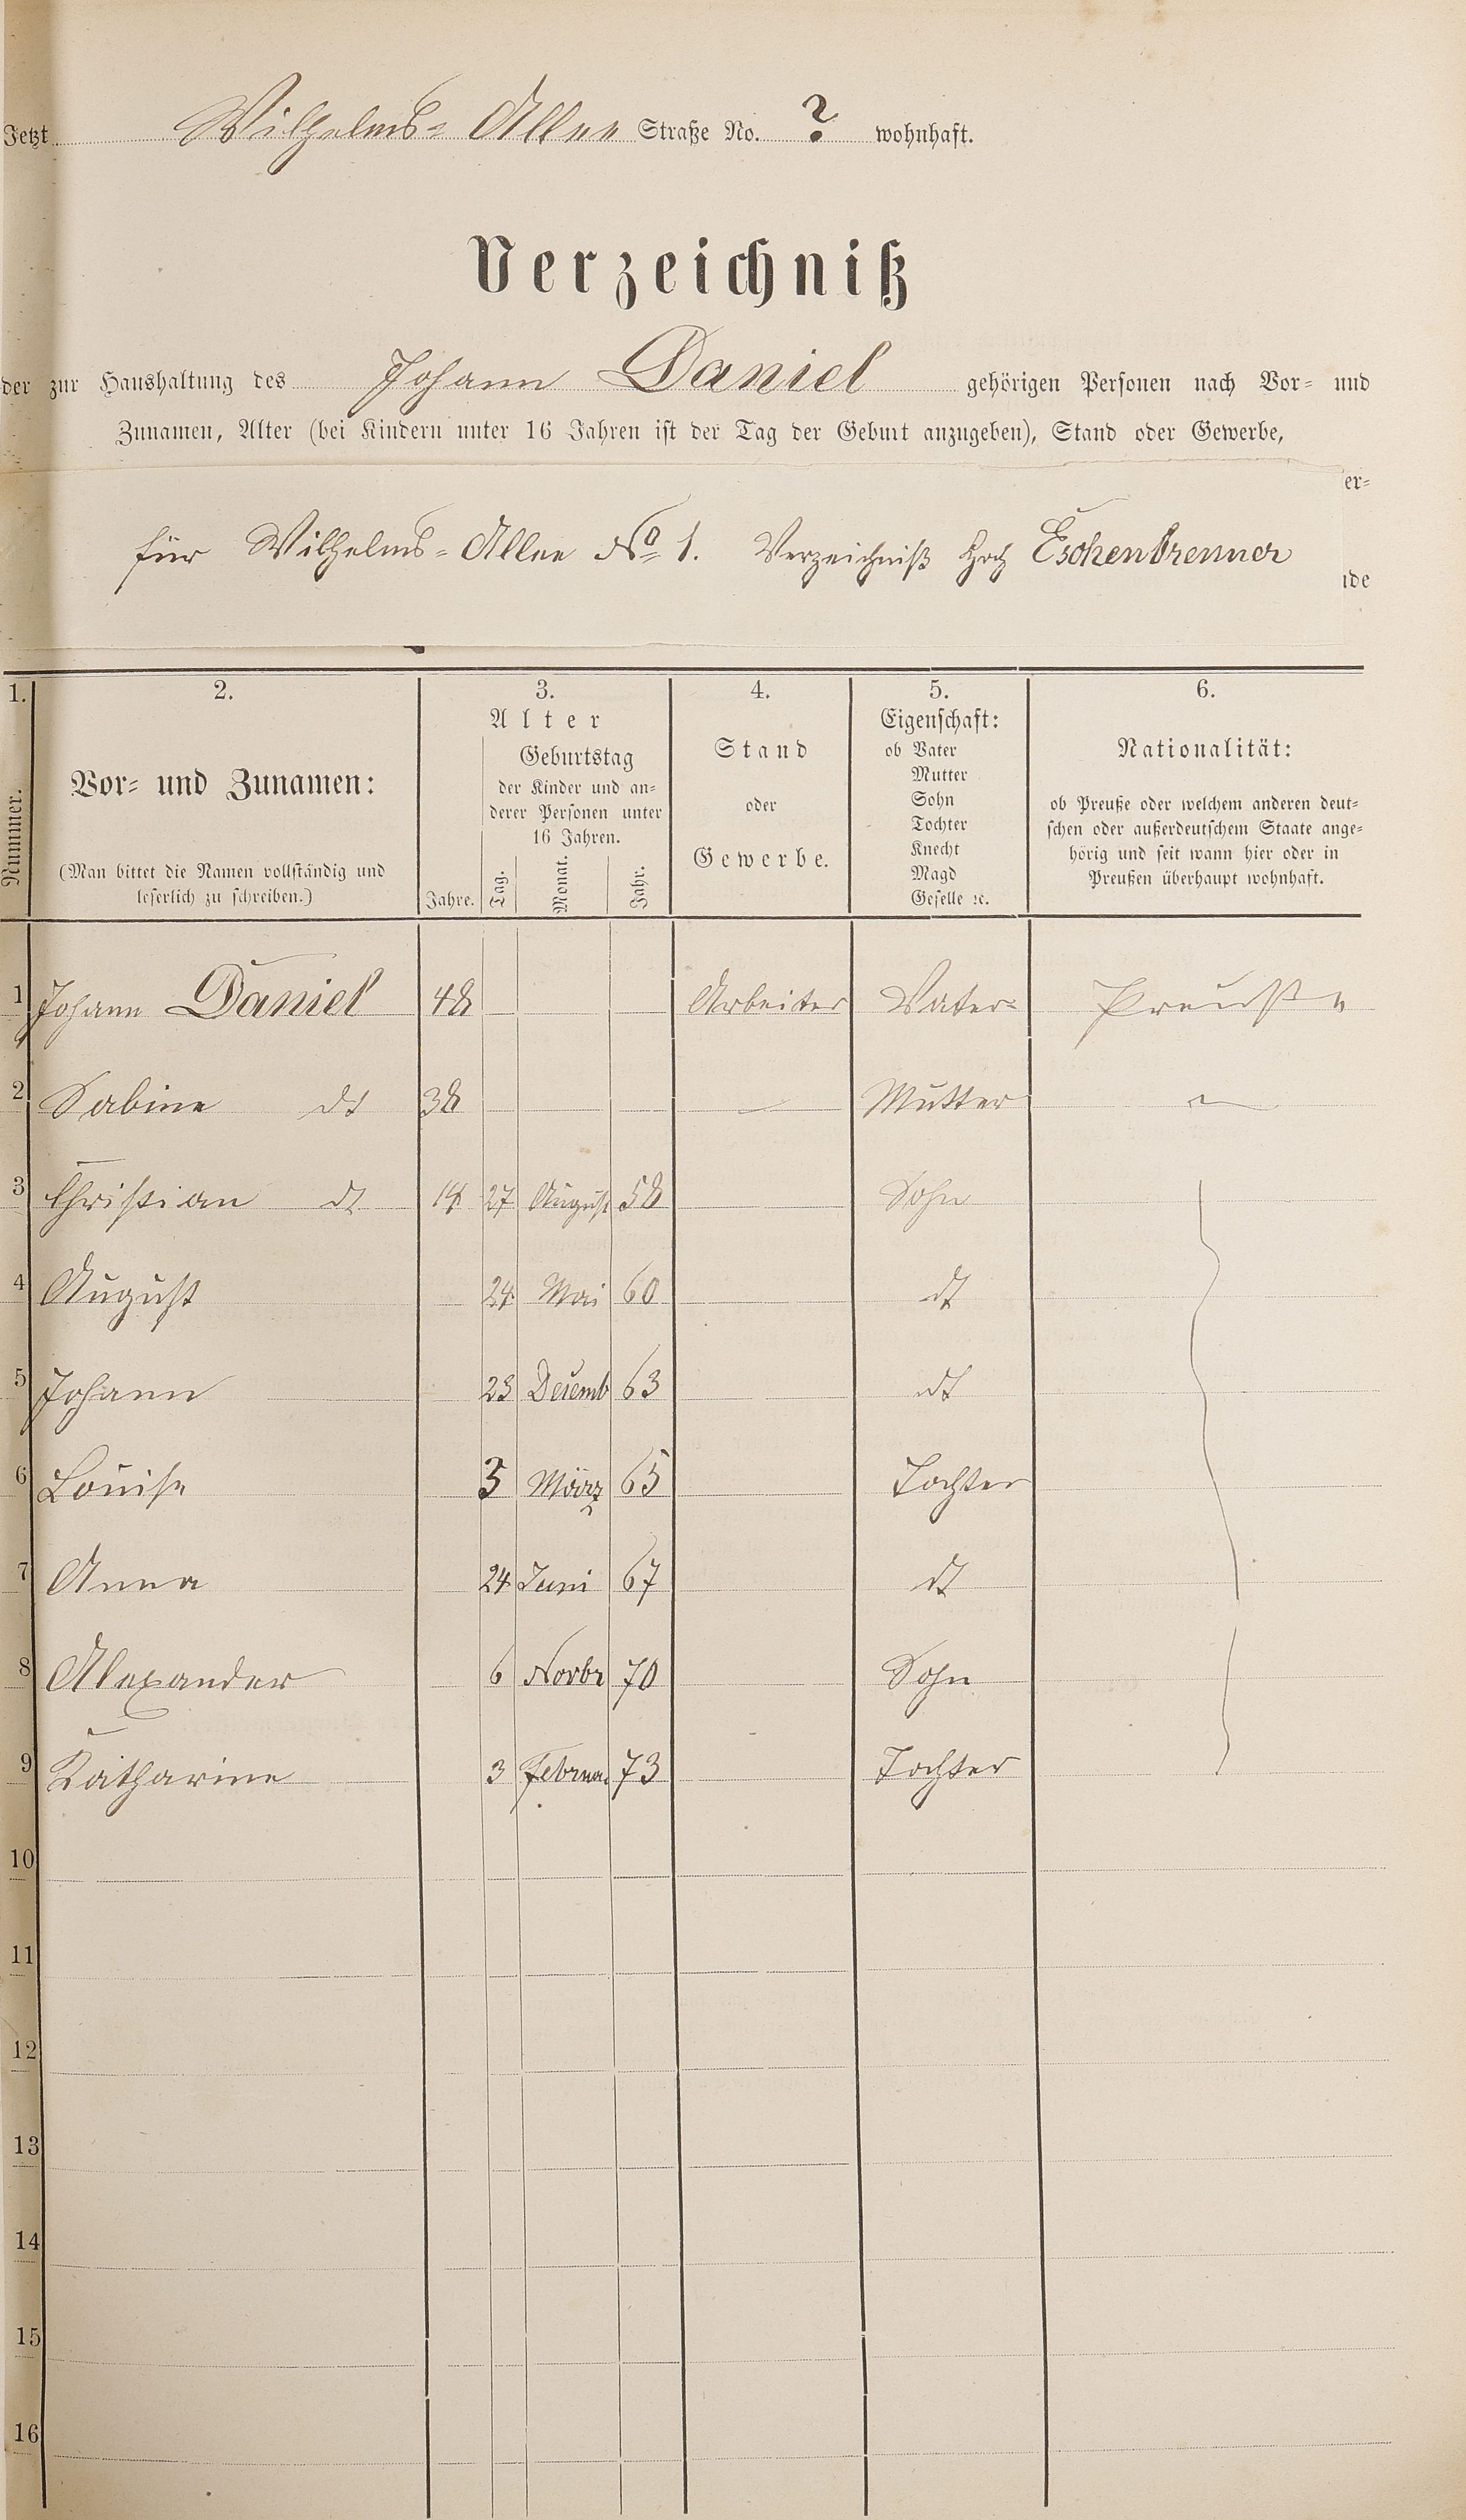 Jetzt Wilhelms- Allee Straße No. ? wohnhaft.
Verzeichniß
der zur Haushaltung des Johann Daniel gehörigen Personen nach Vor- und
Zunamen, Alter (bei Kindern unter 16 Jahren ist der Tag der Geburt anzugeben), Stand oder Gewerbe,
er-
für Wilhelms-Allee No 1. Verzeichniß Eschenbrenner
1. 2. 3. 4. 5. 6.
Nummer.
Vor- und Zunamen:
(Man bittet die Namen vollständig und
leserlich zu schreiben.)
Alter
Jahre.
Geburtstag
der Kinder und an-
derer Personen unter
16 Jahren.
Tag. Monat. Jahr.
Stand
oder
Gewerbe.
Eigenschaft:
ob Vater
Mutter
Sohn
Tochter
Knecht
Magd
Geselle ꝛc.
Nationalität:
ob Preuße oder welchem anderen deut-
schen oder außerdeutschem Staate ange-
hörig und seit wann hier oder in
Preußen überhaupt wohnhaft.
1 Johann Daniel 48 Arbeiter Vater Preuße
2 Sabine dt 38 — Mutter
3 Christian dt 14 27 August 58 Sohn
4 August 24 Mai 60 dt
5 Johann 23 Decemb 63 dt
6 Louise 3 März 65 Tochter
7 Anna 24 Juni 67 dt
8 Alexander 6 Novbr 70 Sohn
9 Katharine 3 Februa. 73 Tochter
10
11
12
13
14
15
16